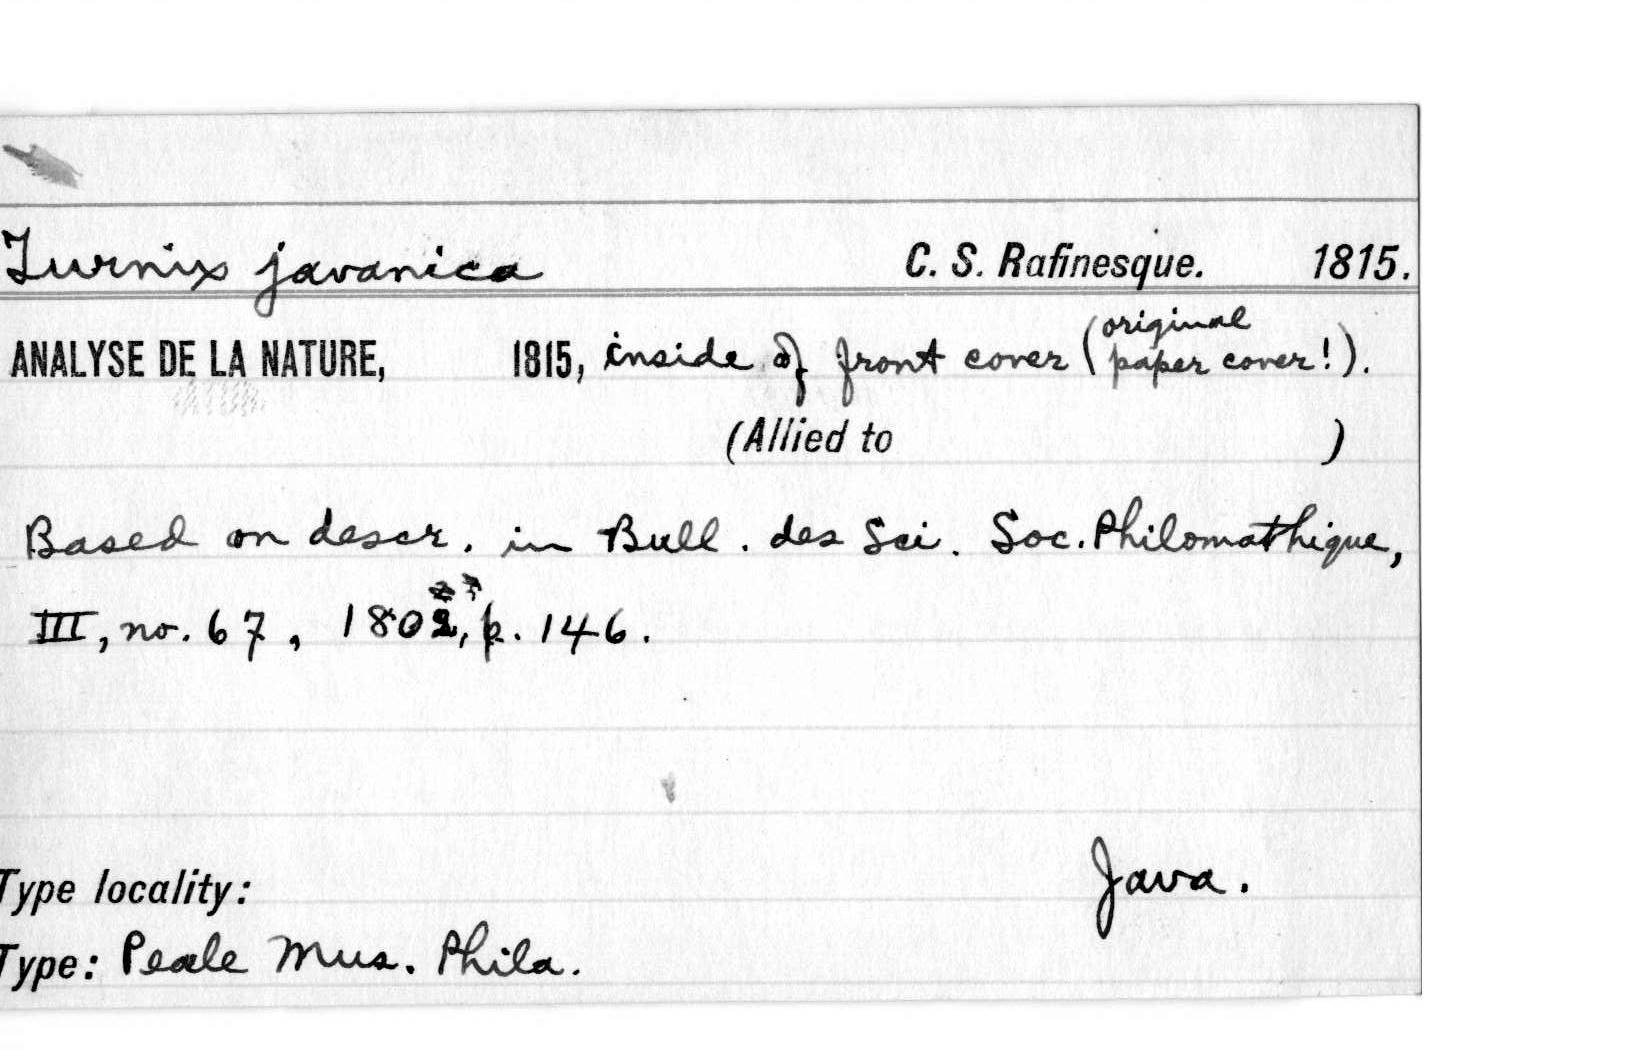 Turnix javanica C. S. Rafinesque. 1815.
ANALYSE DE LA NATURE, 1815, inside of front cover (original paper cover!).
(Allied to )
Based on descr. in Bull. des Sci. Soc. Philomathique,
III, no. 67, 1802, p. 146.
Java.
Type locality:
Type: Peale Mus. Phila.